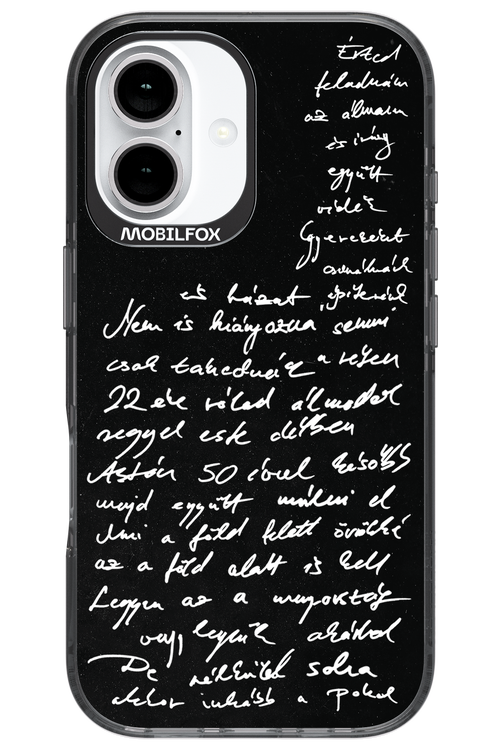 MOBILFOX
Érted
feladnám
az álmaim
és így
együtt
Gyereket
csinálnánk
és házat építenénk
Nem is hiányozna semmi
csak
22 éve rólad álmodok
reggel este délben
Aztán 50 évvel később
majd együtt múlni el
Ami a föld felett örökké
az a föld alatt is kell
Legyen az a mennyország
vagy legyünk akárhol
De nélküled soha
akkor inkább a Pokol